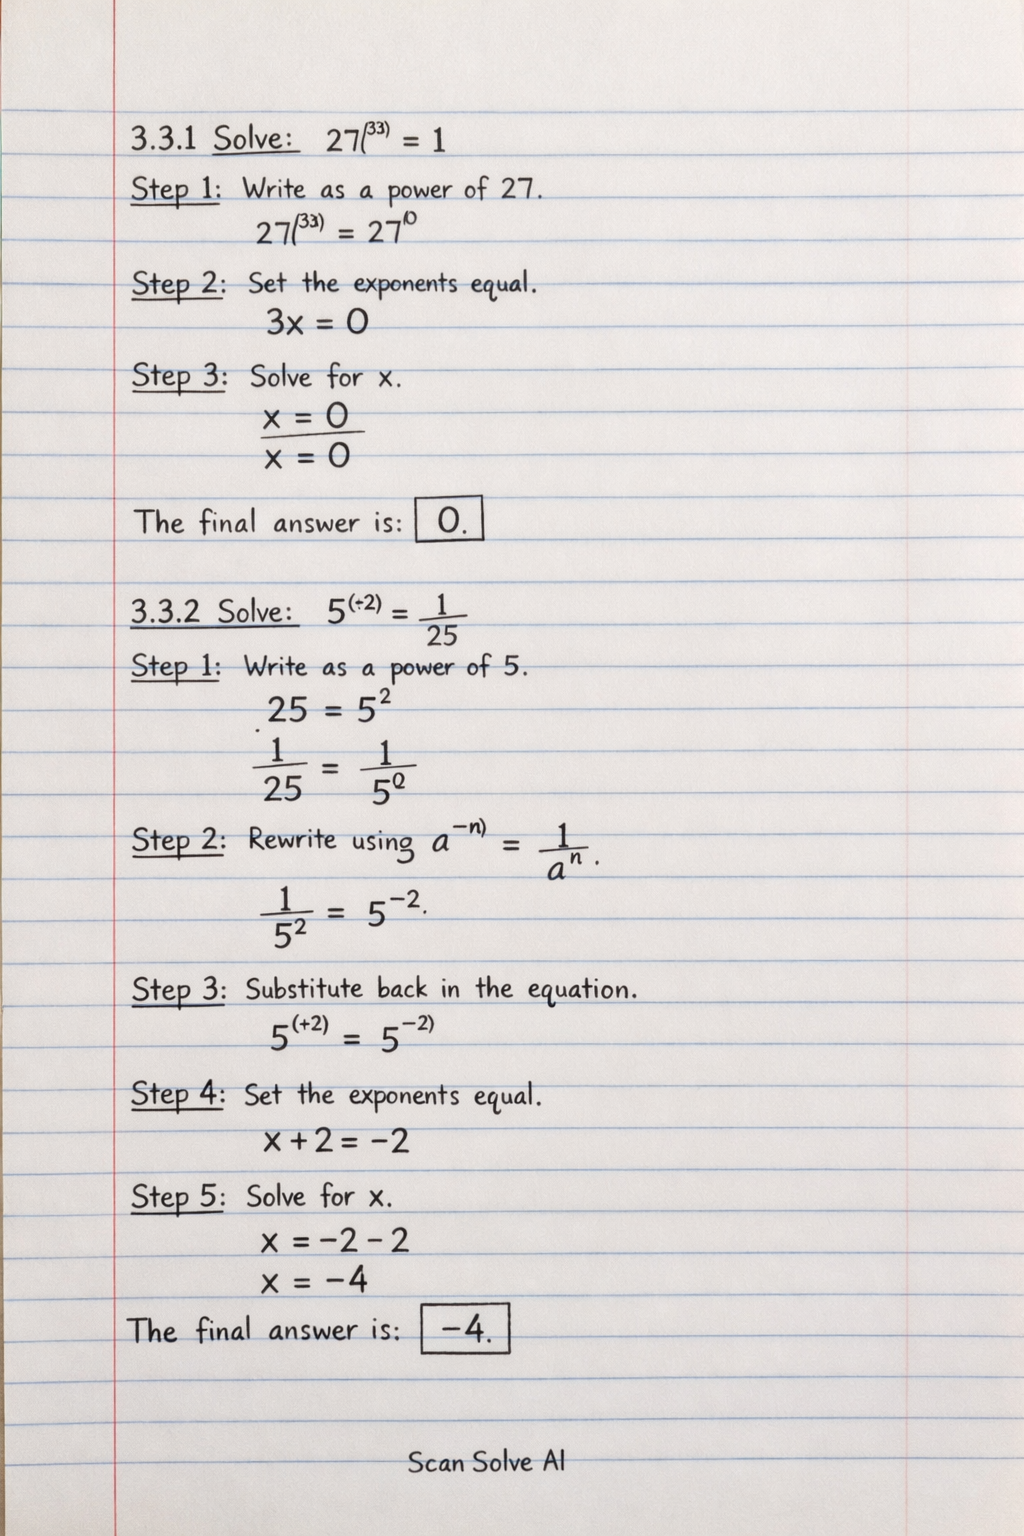 3.3.1 Solve: 27^(33) = 1
Step 1: Write as a power of 27.
27^(33) = 27^0
Step 2: Set the exponents equal.
3x = 0
Step 3: Solve for x.
x = 0
x = 0
The final answer is: 0.
3.3.2 Solve: 5^(÷2) = 1/25
Step 1: Write as a power of 5.
25 = 5^2
1/25 = 1/5^Q
Step 2: Rewrite using a^-n) = 1/a^n.
1/5^2 = 5^-2.
Step 3: Substitute back in the equation.
5^(+2) = 5^-2)
Step 4: Set the exponents equal.
x + 2 = -2
Step 5: Solve for x.
x = -2 - 2
x = -4
The final answer is: -4.
Scan Solve AI